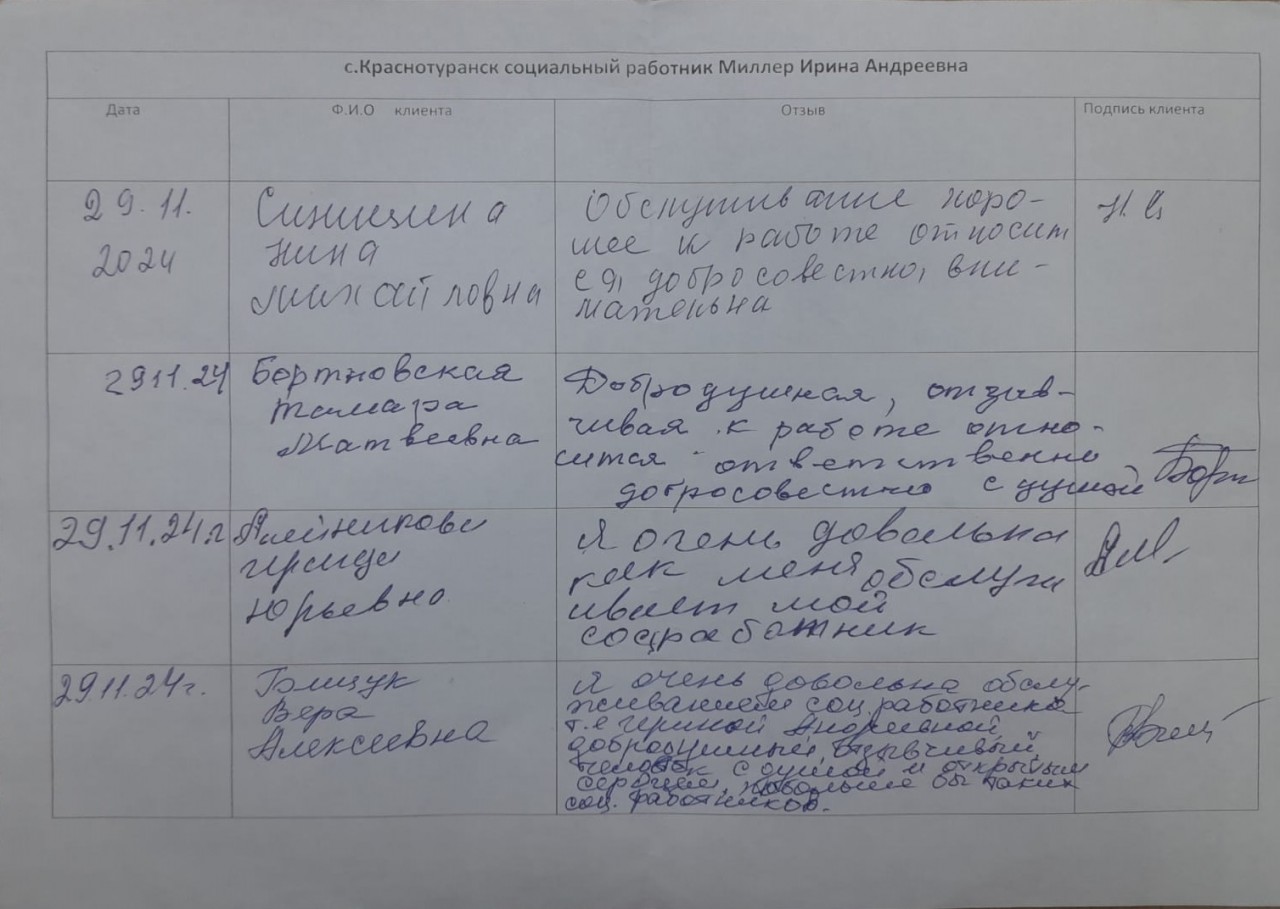 с.Краснотуранск социальный работник Миллер Ирина Андреевна
Дата Ф.И.О клиента Отзыв Подпись клиента
29.11.
2024
Синицина
Нина
Михайловна
Обслуживание хоро-
шее к работе относит
ся, добросовестно, вни-
мательна
29 11. 24
Бортновская
Тамара
Матвеевна
Добродушная, отзыв-
чивая к работе отно-
сится ответственно
добросовестно с душой
Борт
29.11.24 г
Юрьевна
Я очень довольна
как меня обслуги
ивает мой
соцработник
29.11.24г.
Вера
Алексеевна
Я очень довольна обслу-
живанием соц. работника
т.е Ириной Андреевной,
добродушный, отзывчивый
человек с душой и открытым
сердцем, побольше бы таких
соц. работников.